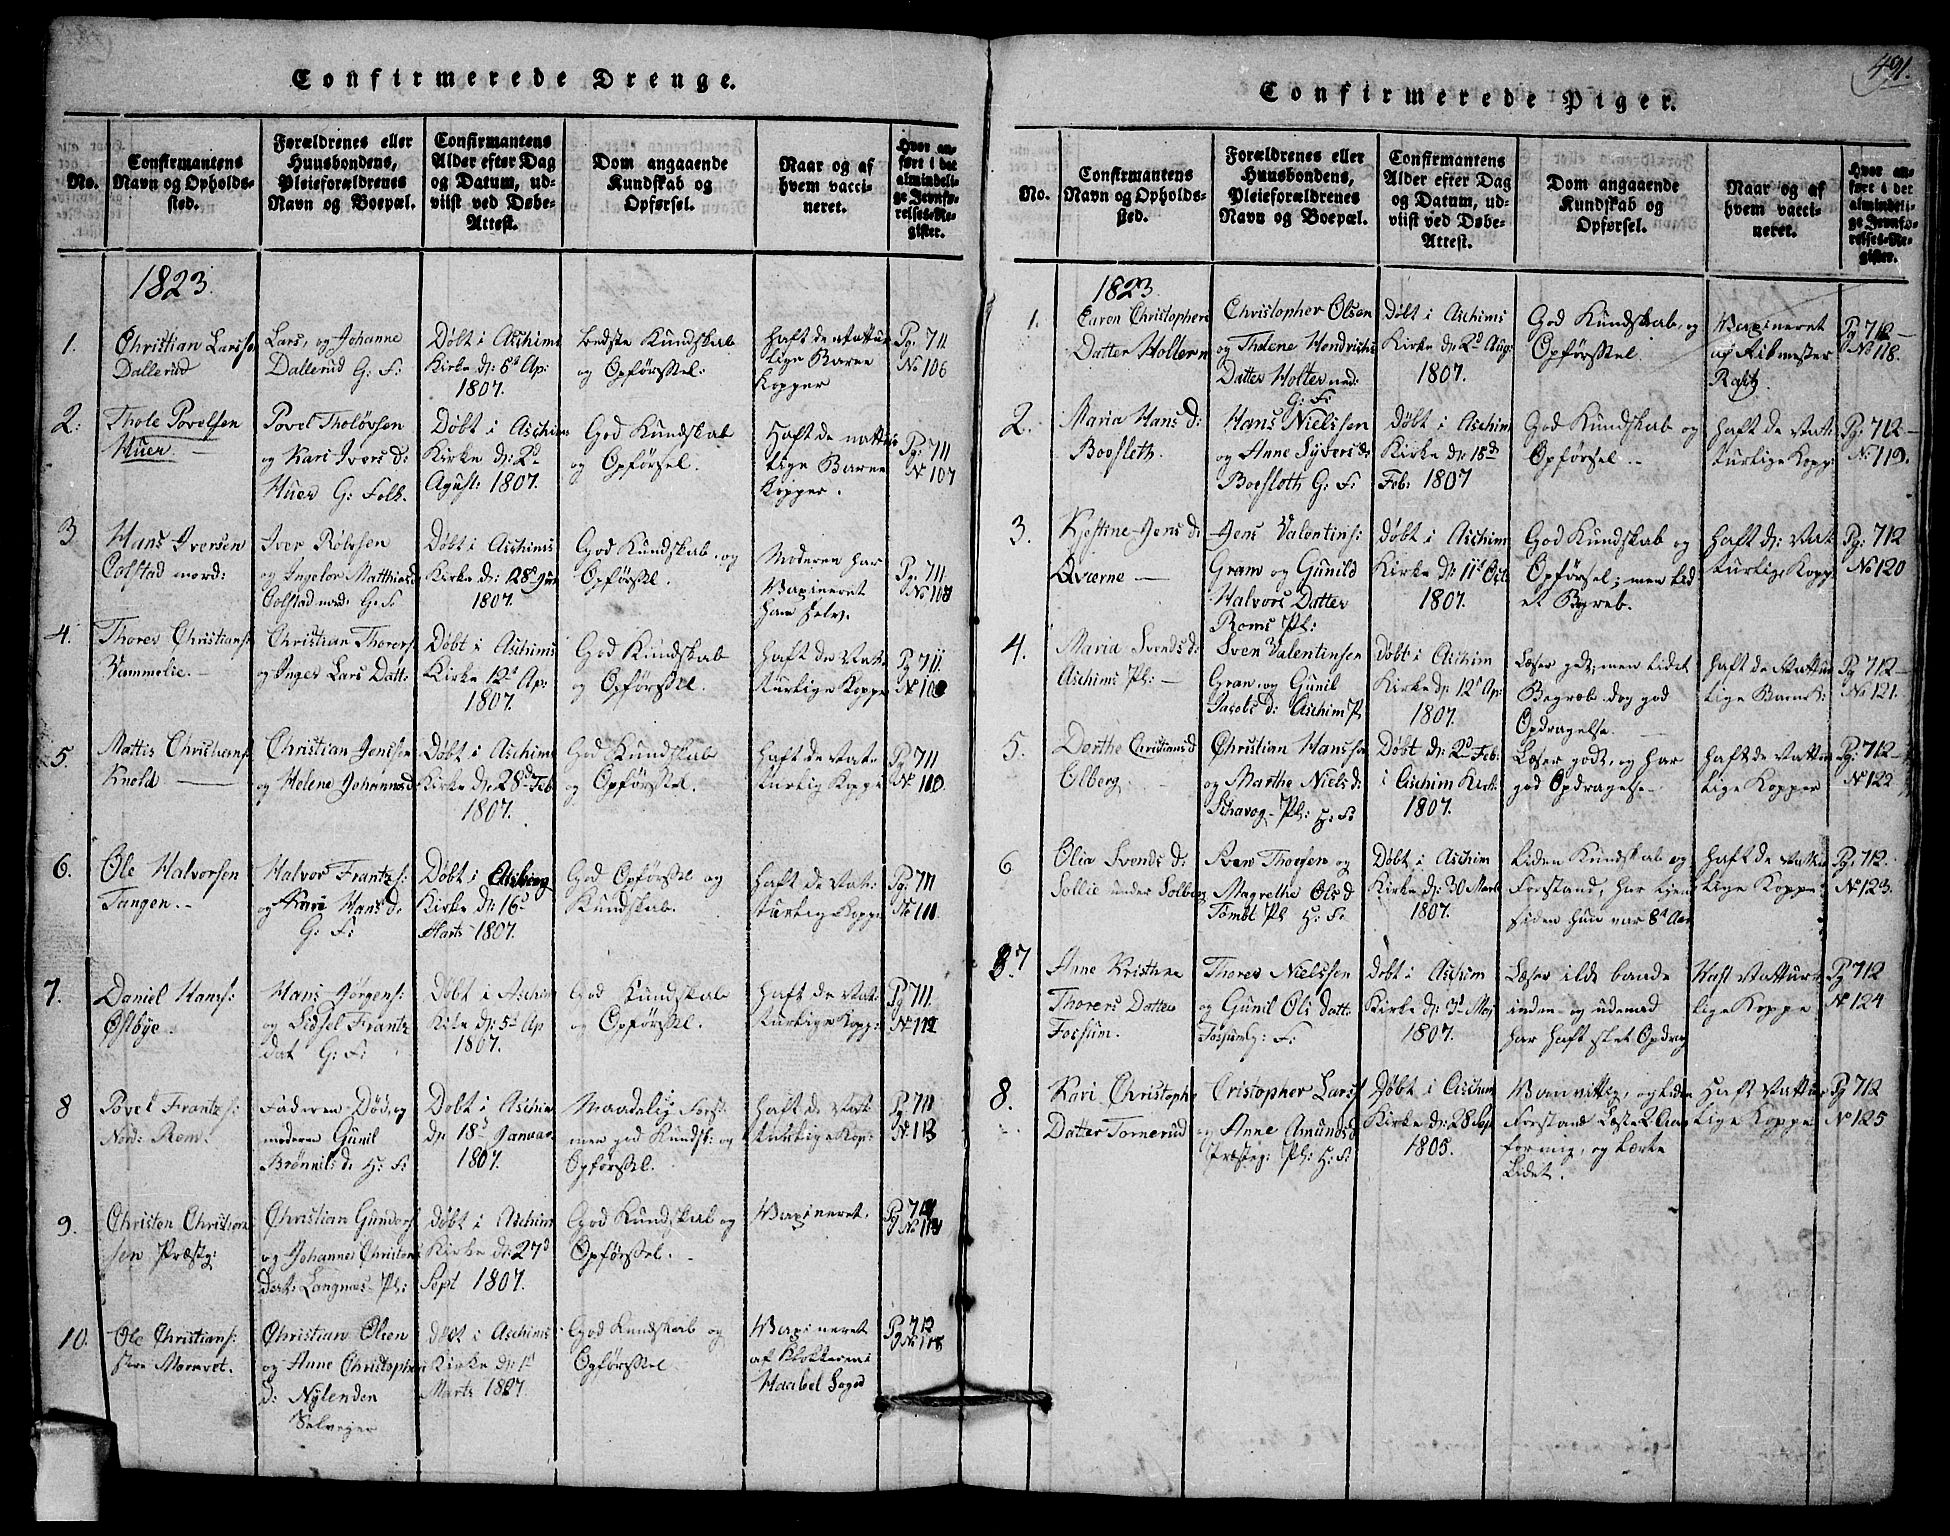 491.
Confirmerede Drenge.
No.
Confirmantens
Navn og Opholds-
sted.
Forældrenes eller
Huusbondens,
Pleieforældrenes
Navn og Boepæl.
Confirmantens
Alder efter Dag
og Datum, ud-
viist ved Døbe-
Attest.
Dom angaaende
Kundskab og
Opførsel.
Naar og af
hvem vacci-
neret.
Hvor an-
ført i det
almindeli-
ge Jevnfø-
relses-Re-
gister.
1823.
1.
Christian Larssen
Dallerud
Lars, og Johanne
Dallerud G: F:
Døbt i Aschims
Kirke d: 6d Ap:
1807.
bedste Kundskab
og Opførssel:
haft de nattur
lige Barne
Kopper
Pg: 711
No 106
2.
Thole Povelsen
Huer
Povel Tholøvsen
og Kari Ivers d:
Huer G: Folk.
Døbt i Aschim
Kirke d: 2d
Agust: 1807.
God Kundskab
og Opførsel.
Haft de nattur
lige Barne
Kopper.
Pg: 711
No 107
3
Hans Iversen
Colstad nord:
Iver
og Ingebor Matthias d
Colstad nord. G: F:
Døbt i Aschims
Kirke d: 28d Jun
1807.
God Kundskab og
Opførssel.
Moderen har
Waxineret
ham selv.
Pg: 711
No 108
4.
Thorer Christians:
Vammelie.
Christian Thorers:
og Inger Lars Datt:
Døbt i Aschims
Kirke 12d Ap:
1807.
God Kundskab
og Opførssel.
haft de Nat
turlige Koppe
Pg 711
No 109
5.
Mattis Christians:
Knold
Christian Jenssen
og Helene Johannes d
Døbt i Aschims
Kirke d: 28d Feb
1807.
God Kundskab
og Opførssel.
haft de Nat
turlig Koppe
Pg 711
No 110
6.
Ole Halvorsen
Tangen.
Halvor Frantz s:
og Kari Hans d:
G: F:
Døbt i
Kirke d: 16d
Marts 1807.
God Opførssel og
Kundskab.
haft de Nat:
turlig Koppe
Pg: 711
No 111
7.
Daniel Hans:
Østbye.
Hans Jørgens:
og Lidsel Frantz
dat G: F:
Døbt i Aschim
Kirke d: 5d Ap
1807.
God Kundskab
og Opførssel.
haft de Nat
turlige Kopp:
Pg 711
No 112
8
Povel Frantz s:
Nord: Rom.
Faderen Død, og
moderen Gunil
Brønnils d: H: F:
Døbt i Aschim
d: 18d Januar
1807.
Maadelig Forst
men god Kundsk: og
Opførssel.
haft de Nat
turlige Kop:
Pg: 711
No: 113
9.
Christen Christian
sen Præstg:
Christian Gunders
og Johanne Christens
datt: Langnæs Pl:
Døbt i Aschim
Kirke d: 27d
Sept 1807.
God Kundskab og
Opførssel.
Waxineret.
Pg 711
No 114
10.
Ole Christians:
Christian Olsen
og Anne Christopher
d: Nylenden
Selveyer
Døbt i Aschims
Kirke d: 1d
Marts 1807.
God Kundskab og
Opførssel
Waxineret
af Klokkeren i
Haabel Sogn
Pg 712
No 115
Confirmerede Piger.
No.
Confirmantens
Navn og Opholds-
sted.
Forældrenes eller
Huusbondens,
Pleieforældrenes
Navn og Boepæl.
Confirmantens
Alder efter Dag
og Datum, ud-
viist ved Døbe-
Attest.
Dom angaaende
Kundskab og
Opførsel.
Naar og af
hvem vacci-
neret.
Hvor an-
ført i det
almindeli-
ge Jevnfø-
relses-Re-
gister.
1823
1.
Caren Christophers
Datter Holter n
Christopher Olsen
og Tholene Hendrichs
Datter Holter ned:
G: F:
Døbt i Aschims
Kirke d: 2d Aug:
1807.
God Kundskab og
Opførssel.
Waxineret
af Rikmester
Pg: 712
No 118.
2.
Maria Hans d:
Boesleth.
Hans Nielssen
og Anne Syvers d:
Boesloth G: F:
Døbt i Aschim
Kirke d: 15de
Feb: 1807
God Kundskab og
Opførsel.
haft de Nat
turlige Kopp:
Pg: 712
No: 119.
3.
Kjestine Jens d:
Jens Valentins:
Gram og Gunild
Halvors Datter
Roms Pl:
Døbt i Aschim
Kirke d: 11d Oct
1807.
God Kundskab og
Opførsel; men Lid
et Begreb.
haft d: Nat
turlige Kopp
Pg: 712
No 120
4.
Maria Svends d:
Aschims Pl:
Sven Valentinsen
Gran og Gunil
Jacobs d: Aschim Pl
Døbt i Aschim
Kirke d: 12d Ap:
1807.
Læser gdt; men lidet
Begreb. dog god
Opdragelse.
haft de Nattur
lige Barnek:
Pg 712
No 121.
5.
Dorthe Christians d
Olberg
Christian Hanssen
og Marthe Niels d:
Skavog Pl: H: F:
Døbt d: 2d Feb:
i Aschim Kirk:
1807.
Læser godt, og har
god Opdragelse
haft de Nattur
lige Kopper
Pg: 712
No 122
6
Olia Svends d:
Sollie under Solberg
Sven Thorsen og
Magrethe Ols d
Tomt Pl H: F:
Døbt i Aschim
Kirke d: 30 Marts
1807.
Liden Kundskab og
Forstand, har tjent
siden hun var 8d Aar
haft de Nattur
lige Koppe
Pg: 712.
No 123.
7
Anne Kristine
Thorers Datter
Forsum.
Thorer Nielssen
og Gunil Ols datt:
Fossum G: F:
døbt i Aschim
Kirke d: 3d Maj
1807.
Læser ilde baade
inden- og udenad
har haft slet Opdrag
Haft Nattur
lige Koppe
Pg 712
No 124
8.
Kari Christoph
Datter Tornerud
Cristopher Lars s
og Anne Amunds d
Præsteg: Pl: H: F:
Døbt i Aschim
Kirke d: 28 Sep
1805.
Wanvittig, og liden
Forstand Læste 2 Aar
for mig, og lærte
Lidet.
Haft Nattur
lige Koppe
Pg 712
No 125